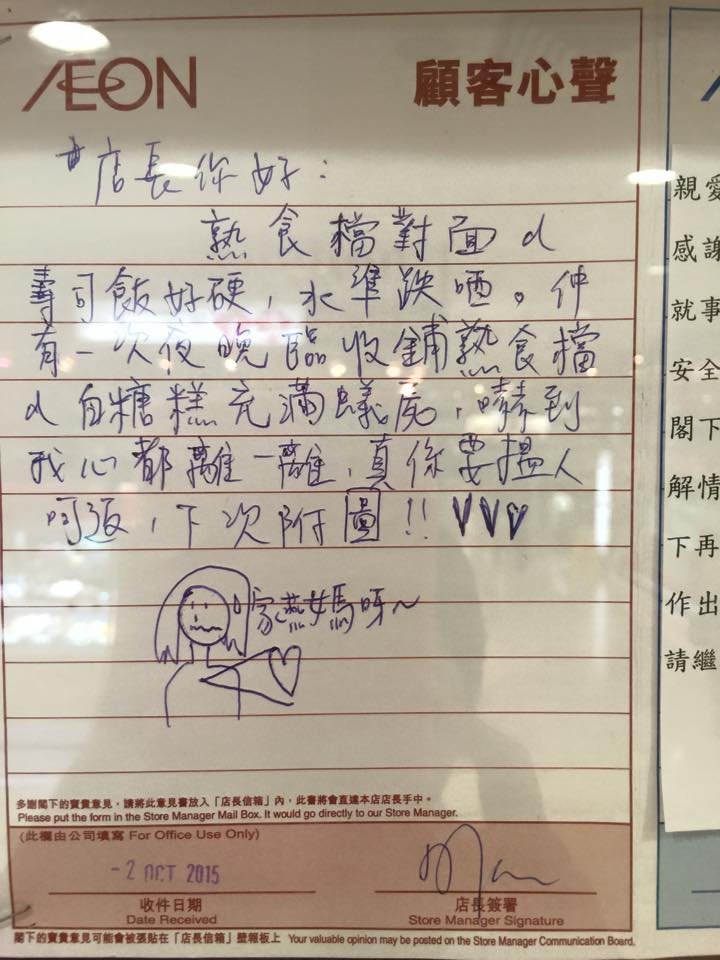 ÆON 顧客心聲
店長你好：
熟食檔對面d
壽司飯好硬，水準跌哂。仲
有一次夜晚臨收鋪熟食檔
d 白糖糕充滿蟻屍，嚇到
我心都離一離，真係要搵人
呵返，下次附圖!! ♥♥♥
家燕媽媽呀~
多謝閣下的寶貴意見，請將此意見書放入「店長信箱」內，此書將會直達本店店長手中。
Please put the form in the Store Manager Mail Box. It would go directly to our Store Manager.
(此欄由公司填寫 For Office Use Only)
-2 OCT 2015
收件日期 店長簽署
Date Received Store Manager Signature
閣下的寶貴意見可能會被張貼在「店長信箱」壁報板上 Your valuable opinion may be posted on the Store Manager Communication Board.
親愛
感謝
就事
安全
閣下
解情
下再
作出
請繼